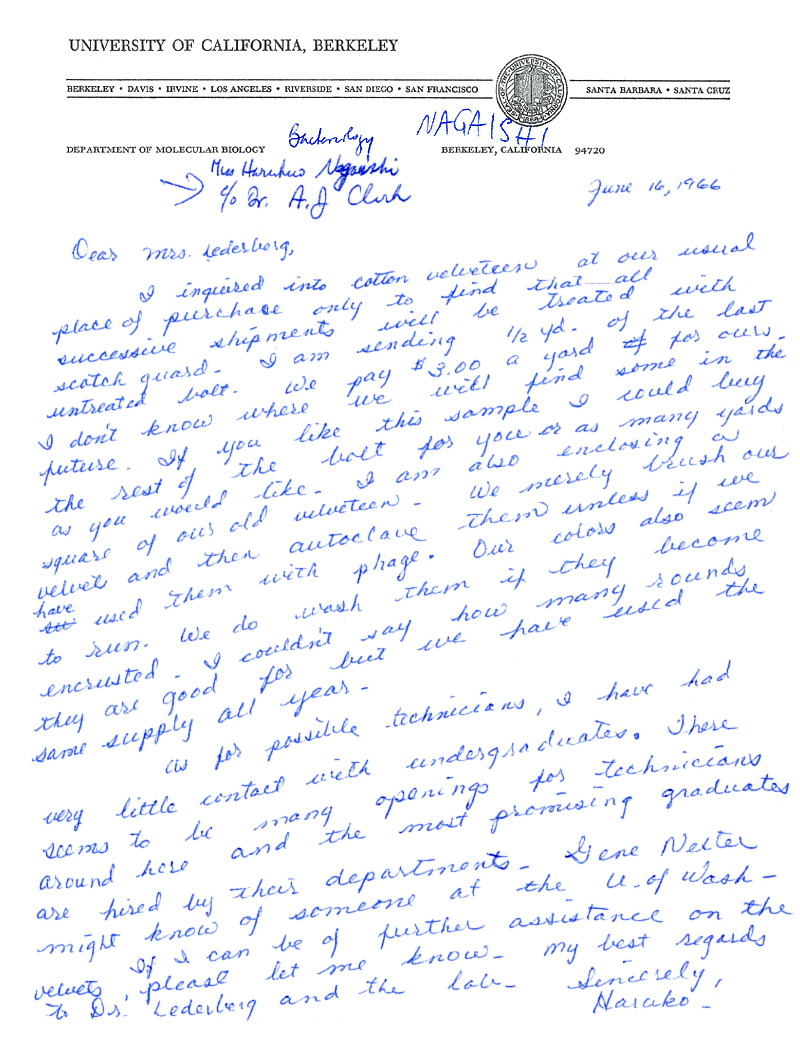 UNIVERSITY OF CALIFORNIA, BERKELEY
BERKELEY • DAVIS • IRVINE • LOS ANGELES • RIVERSIDE • SAN DIEGO • SAN FRANCISCO
SANTA BARBARA • SANTA CRUZ
DEPARTMENT OF MOLECULAR BIOLOGY
Bacteriology
NAGAISHI
BERKELEY, CALIFORNIA 94720
Miss Haruko Nagaishi
c/o Dr. A.J Clark
June 16, 1966
Dear Mrs. Lederberg,
I inquired into cotton velveteen at our usual
place of purchase only to find that all
successive shipments will be treated with
scotch guard. I am sending 1/2 yd. of the last
untreated bolt. We pay $3.00 a yard for ours.
I don't know where we will find some in the
future. If you like this sample I could buy
the rest of the bolt for you or as many yards
as you would like. I am also enclosing a
square of our old velveteen. We merely brush our
velvets and then autoclave them unless if we
have used them with phage. Our colors also seem
to run. We do wash them if they become
encrusted. I couldn't say how many rounds
they are good for but we have used the
same supply all year.
As for possible technicians, I have had
very little contact with undergraduates. There
seems to be many openings for technicians
around here and the most promising graduates
are hired by their departments. Gene Nester
might know of someone at the U. of Wash.
If I can be of further assistance on the
velvets, please let me know. My best regards
to Dr. Lederberg and the lab.
Sincerely,
Haruko.